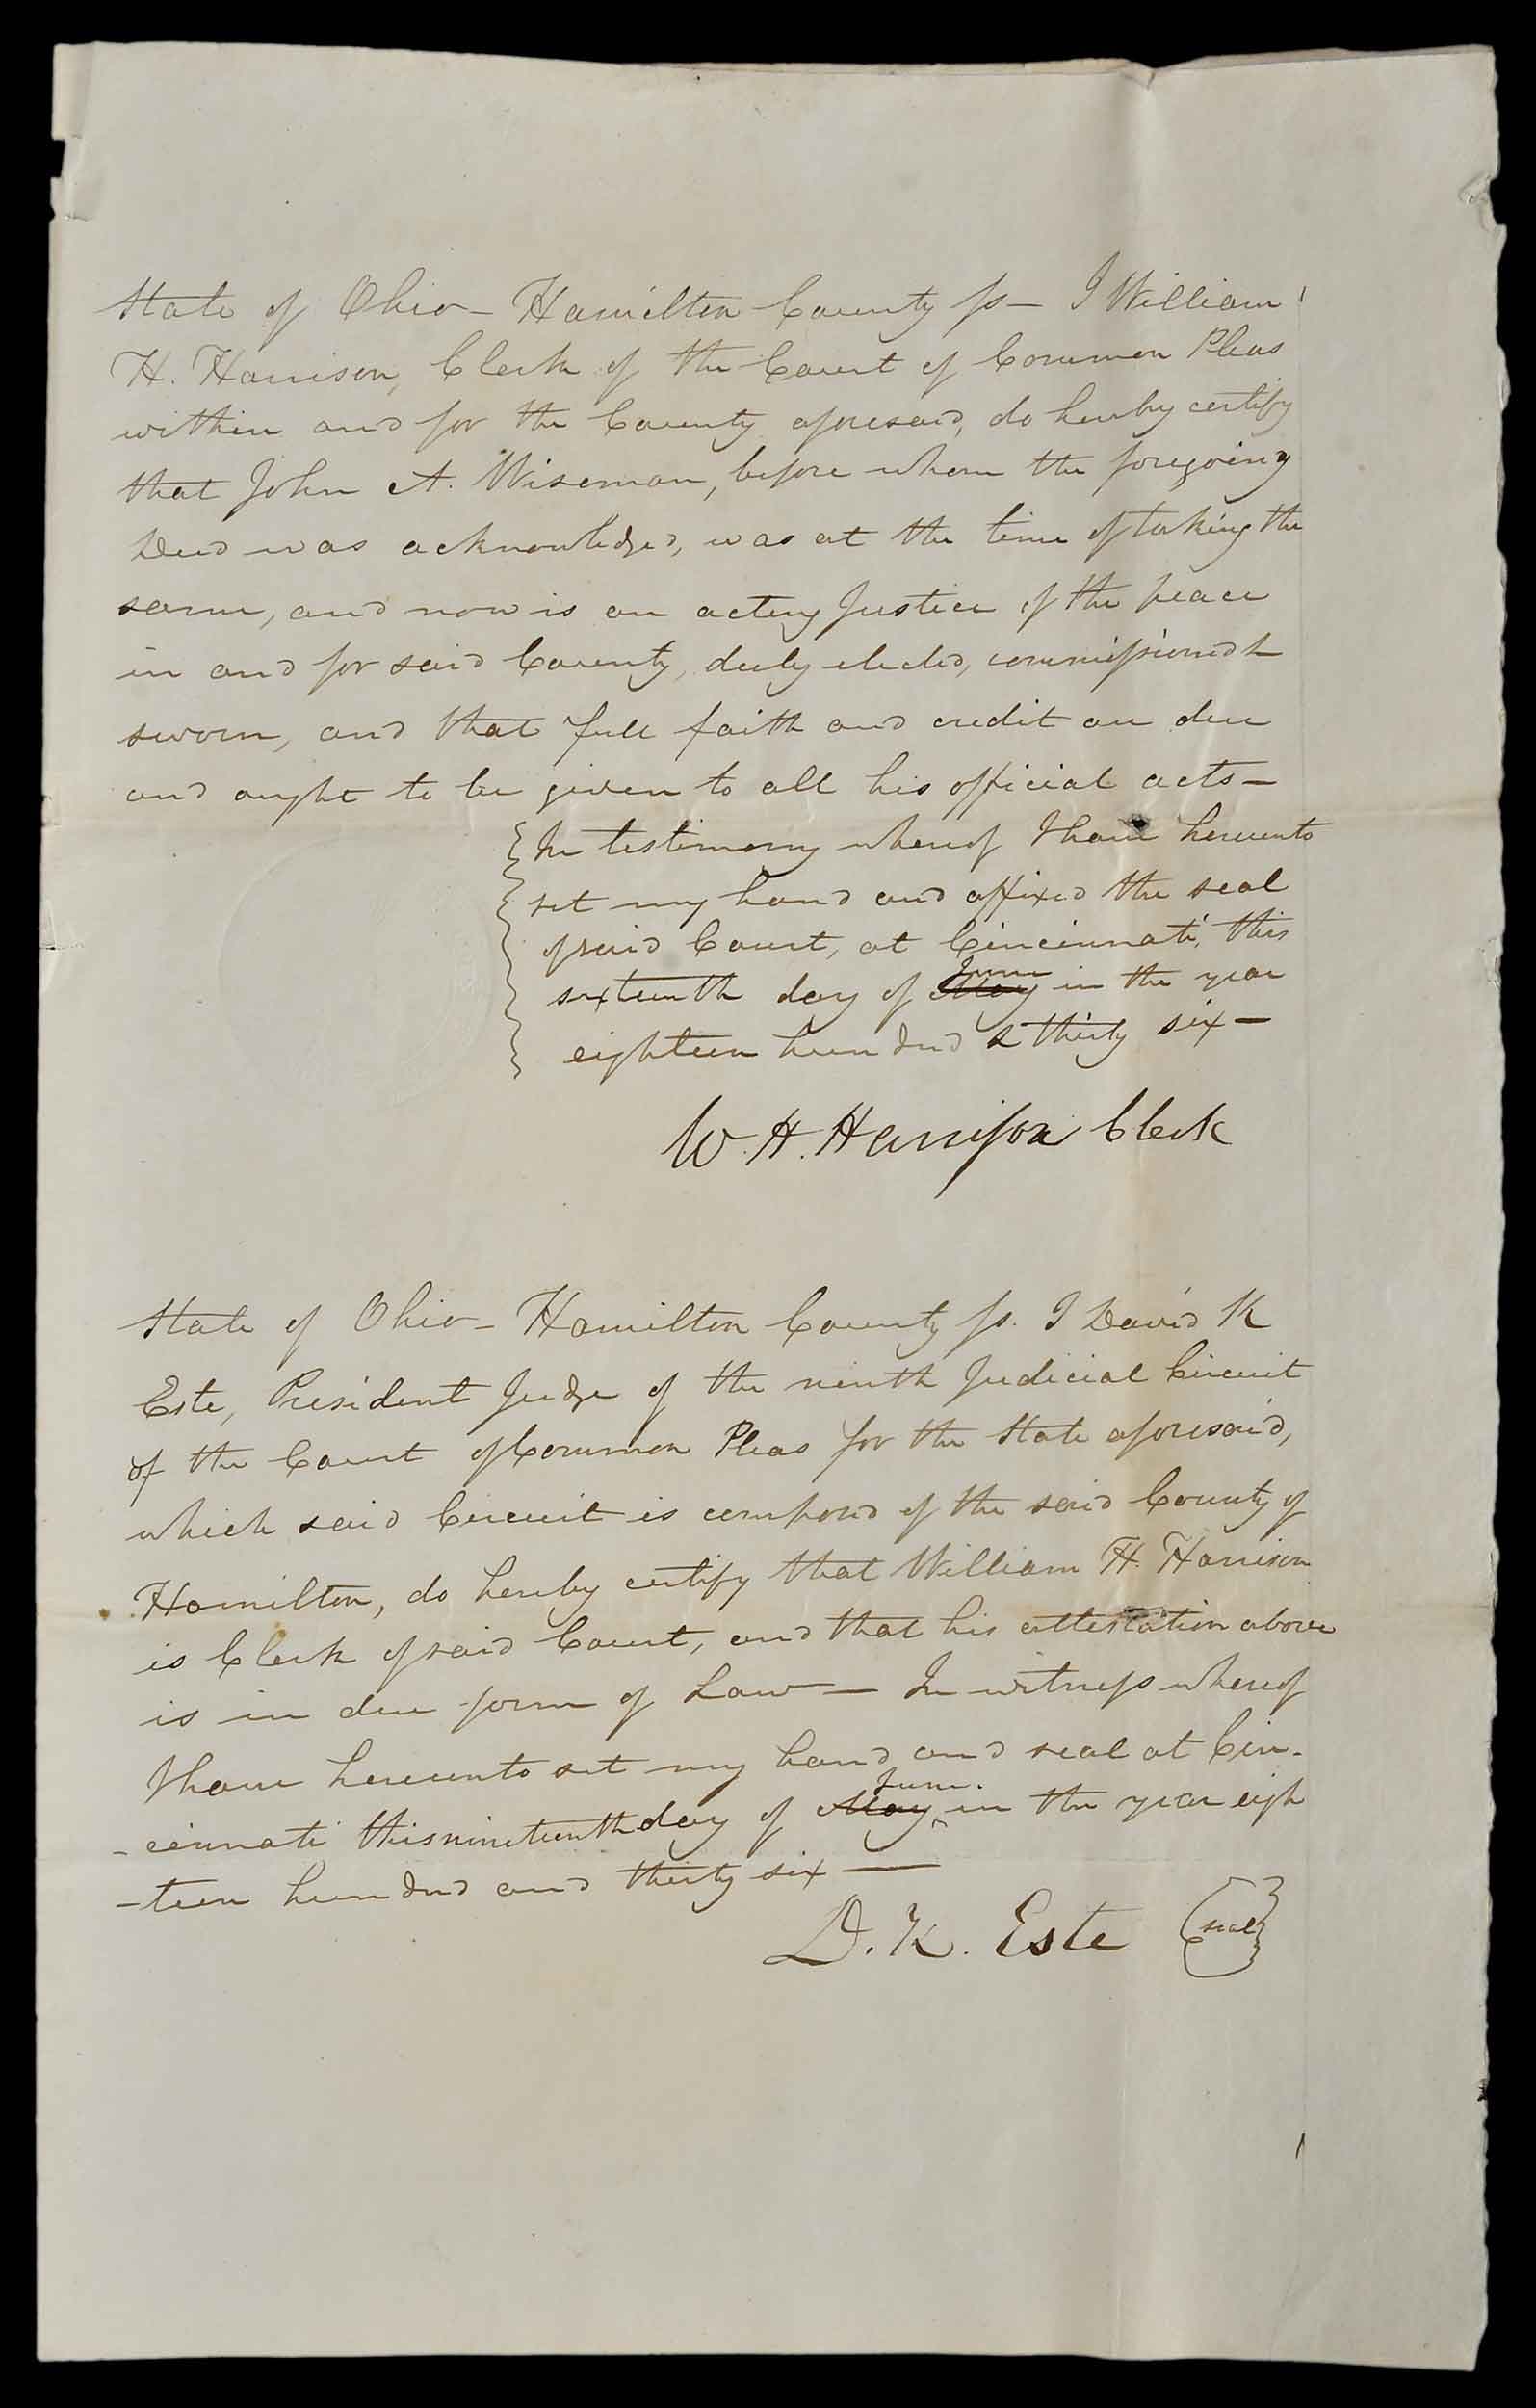 State of Ohio - Hamilton County ss - I William
H. Harrison, Clerk of the Court of Common Pleas
within and for the County aforesaid, do hereby certify
that John A. Wiseman, before whom the foregoing
Deed was acknowledged, was at the time of taking the
same, and now is an acting Justice of the peace
in and for said County, duly elected, commissioned &
sworn, and that full faith and credit are due
and ought to be given to all his official acts -
In testimony whereof I have hereunto
set my hand and affixed the seal
of said Court, at Cincinnati, this
June
sixteenth day of May in the year
eighteen hundred & thirty six -
W. H. Harrison Clerk
State of Ohio - Hamilton County ss. I David K
Este, President Judge of the ninth Judicial Circuit
of the Court of Common Pleas for the State aforesaid,
which said Circuit is composed of the said County of
Hamilton, do hereby certify that William H. Harrison
is Clerk of said Court, and that his attestation above
is in due form of Law - In witness whereof
I have hereunto set my hand and seal at Cin-
June.
-cinnati this nineteenth day of May in the year eigh
-teen hundred and thirty six -
D. K. Este seal